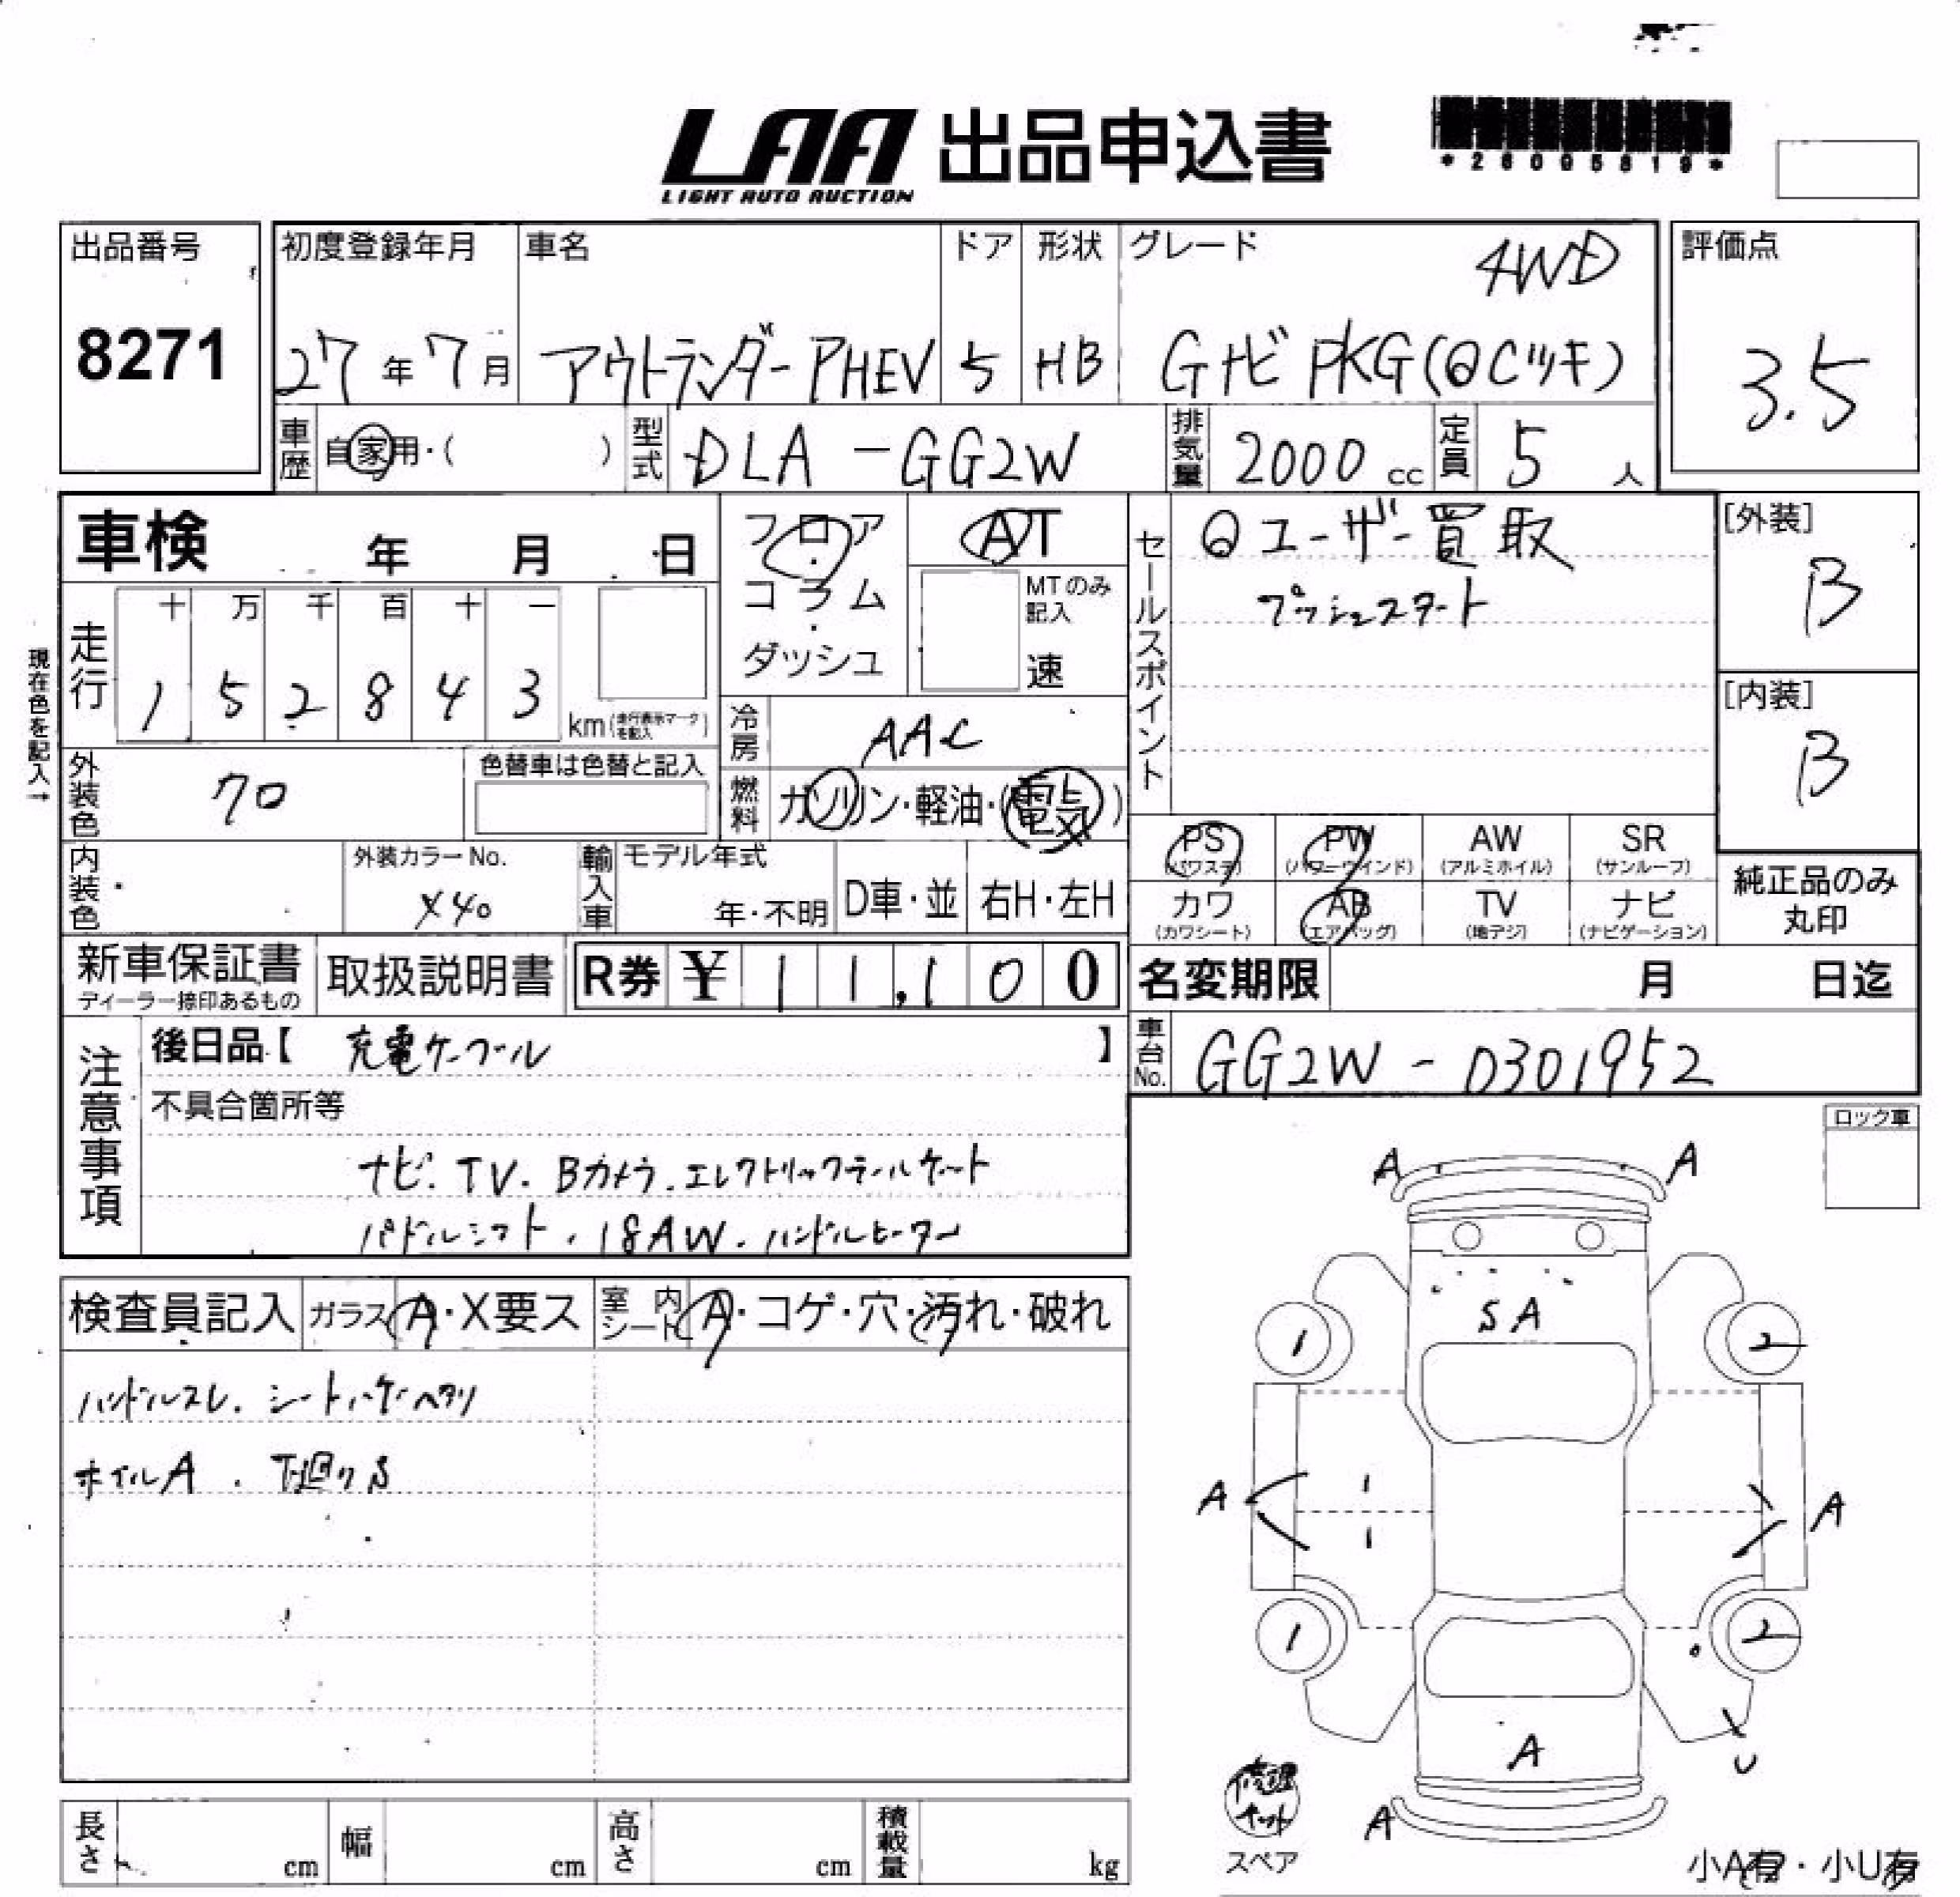 LAA 出品申込書
LIGHT AUTO AUCTION
*26005819*
出品番号
8271
初度登録年月 車名 ドア 形状 グレード 4WD
27年7月 アウトランダーPHEV 5 HB Gナビ PKG(QCツキ)
評価点
3.5
車歴 自家用・( ) 型式 DLA-GG2W 排気量 2000cc 定員 5人
車検 年 月 日
現在色を記入→
走行 十 万 千 百 十 一
1 5 2 8 4 3 km(走行表示マークを記入)
外装色 クロ 色替車は色替と記入
内装色 外装カラーNo. X40
輸入車 モデル年式 年・不明 D車・並 右H・左H
フロア・コラム・ダッシュ
AT
MTのみ記入
速
冷房 AAC
燃料 ガソリン・軽油・(電気)
セールスポイント
ユーザー買取
プッシュスタート
[外装]
B
[内装]
B
PS PW AW SR
(パワステ) (パワーウインド) (アルミホイル) (サンルーフ)
カワ AB TV ナビ
(カワシート) (エアバッグ) (地デジ) (ナビゲーション)
純正品のみ
丸印
新車保証書 取扱説明書 R券 ¥11,100
ディーラー捺印あるもの
名変期限 月 日迄
車台No. GG2W-0301952
注意事項
後日品【 充電ケーブル 】
不具合箇所等
ナビ.TV.Bカメラ.エレクトリックテールゲート
パドルシフト.18AW.ハンドルヒーター
ロック車
検査員記入 ガラス A・X要ス 室内シート A・コゲ・穴・汚れ・破れ
ハンドルスレ.シートハゲヘタリ
ホイルA.下廻りS
A A
SA
1 2
A A
1 2
A
U
A
修理キット
スペア
小A有・小U有
長さ cm 幅 cm 高さ cm 積載量 kg